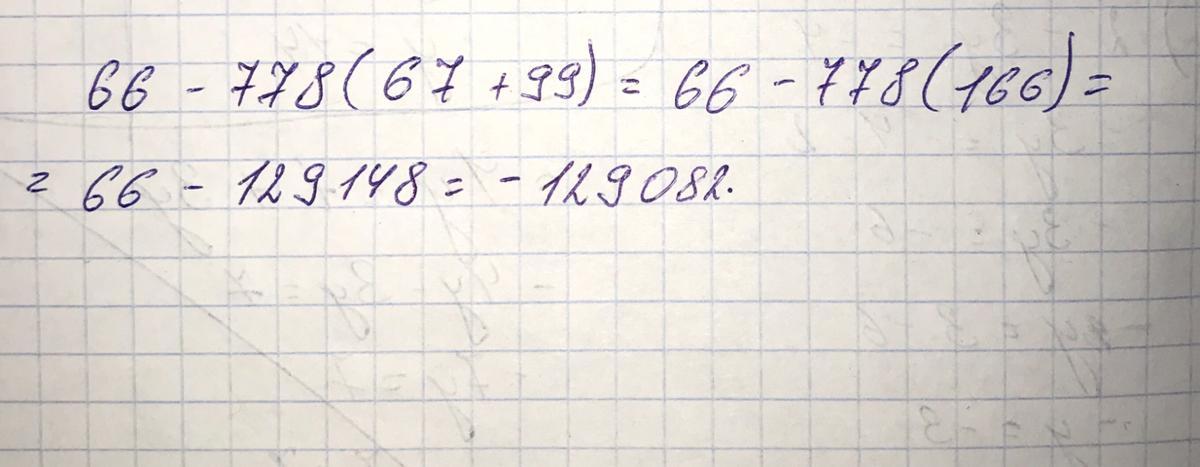 66 - 778(67 + 99) = 66 - 778(166) =
= 66 - 129148 = - 129082.